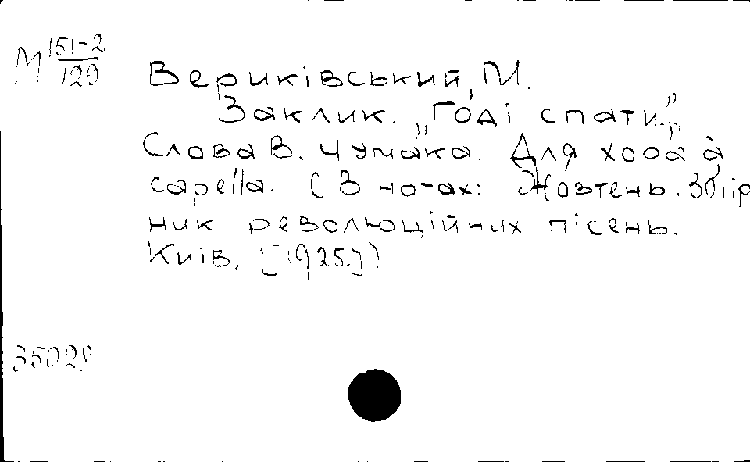 М 151-2/129
Вериківський, М.
Заклик. „Годі спати..."
Слова В. Чумака. Для хора à
capella. (В нотах: Жовтень. Збір
ник революційних пісень.
Київ. [1925.])
35029